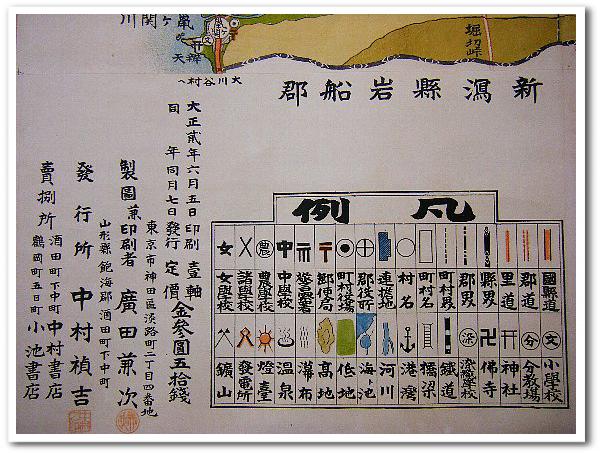 鼠ヶ関川
辨天
堀切峠
大川谷村へ
新潟縣岩船郡
凡例
國縣道
郡道
里道
縣界
郡界
町村界
町村名
村名
連擔地
郡役所
町村役場
郵便局
警察署
中學校
農學校
諸學校
女學校
小學校
分教場
神社
佛寺
染織學校
鐵道
橋梁
港灣
河川
海ト池
低地
高地
瀑布
温泉
燈臺
發電所
鑛山
大正貳年六月五日印刷 壹軸
同 年同月七日發行 定價金參圓五拾錢
東京市神田區淡路町二丁目四番地
製圖兼印刷者 廣田兼次
山形縣飽海郡酒田町下中町
發行所 中村禎吉
賣捌所 酒田町下中町 中村書店
鶴岡町五日町 小池書店